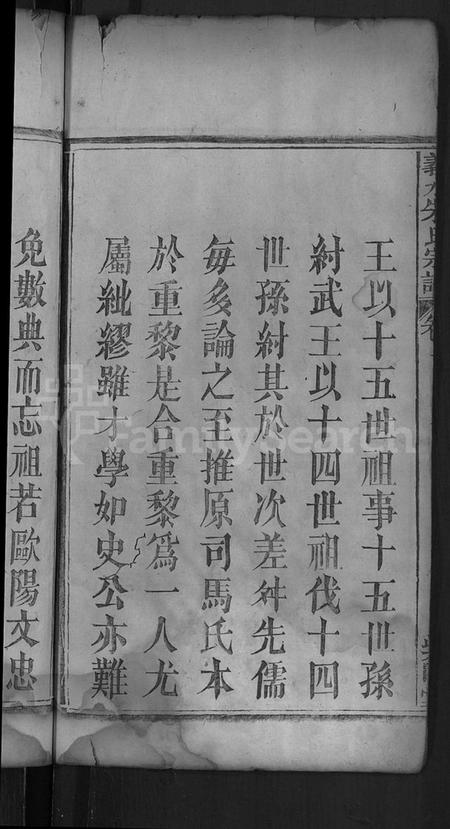 王以十五世祖事十五世孫
紂武王以十四世祖伐十四
世孫紂其於世次差舛先儒
每多論之至推原司馬氏本
於重黎是合重黎爲一人尤
屬紕繆雖才學如史公亦難
免數典而忘祖若歐陽文忠
FamilySearch